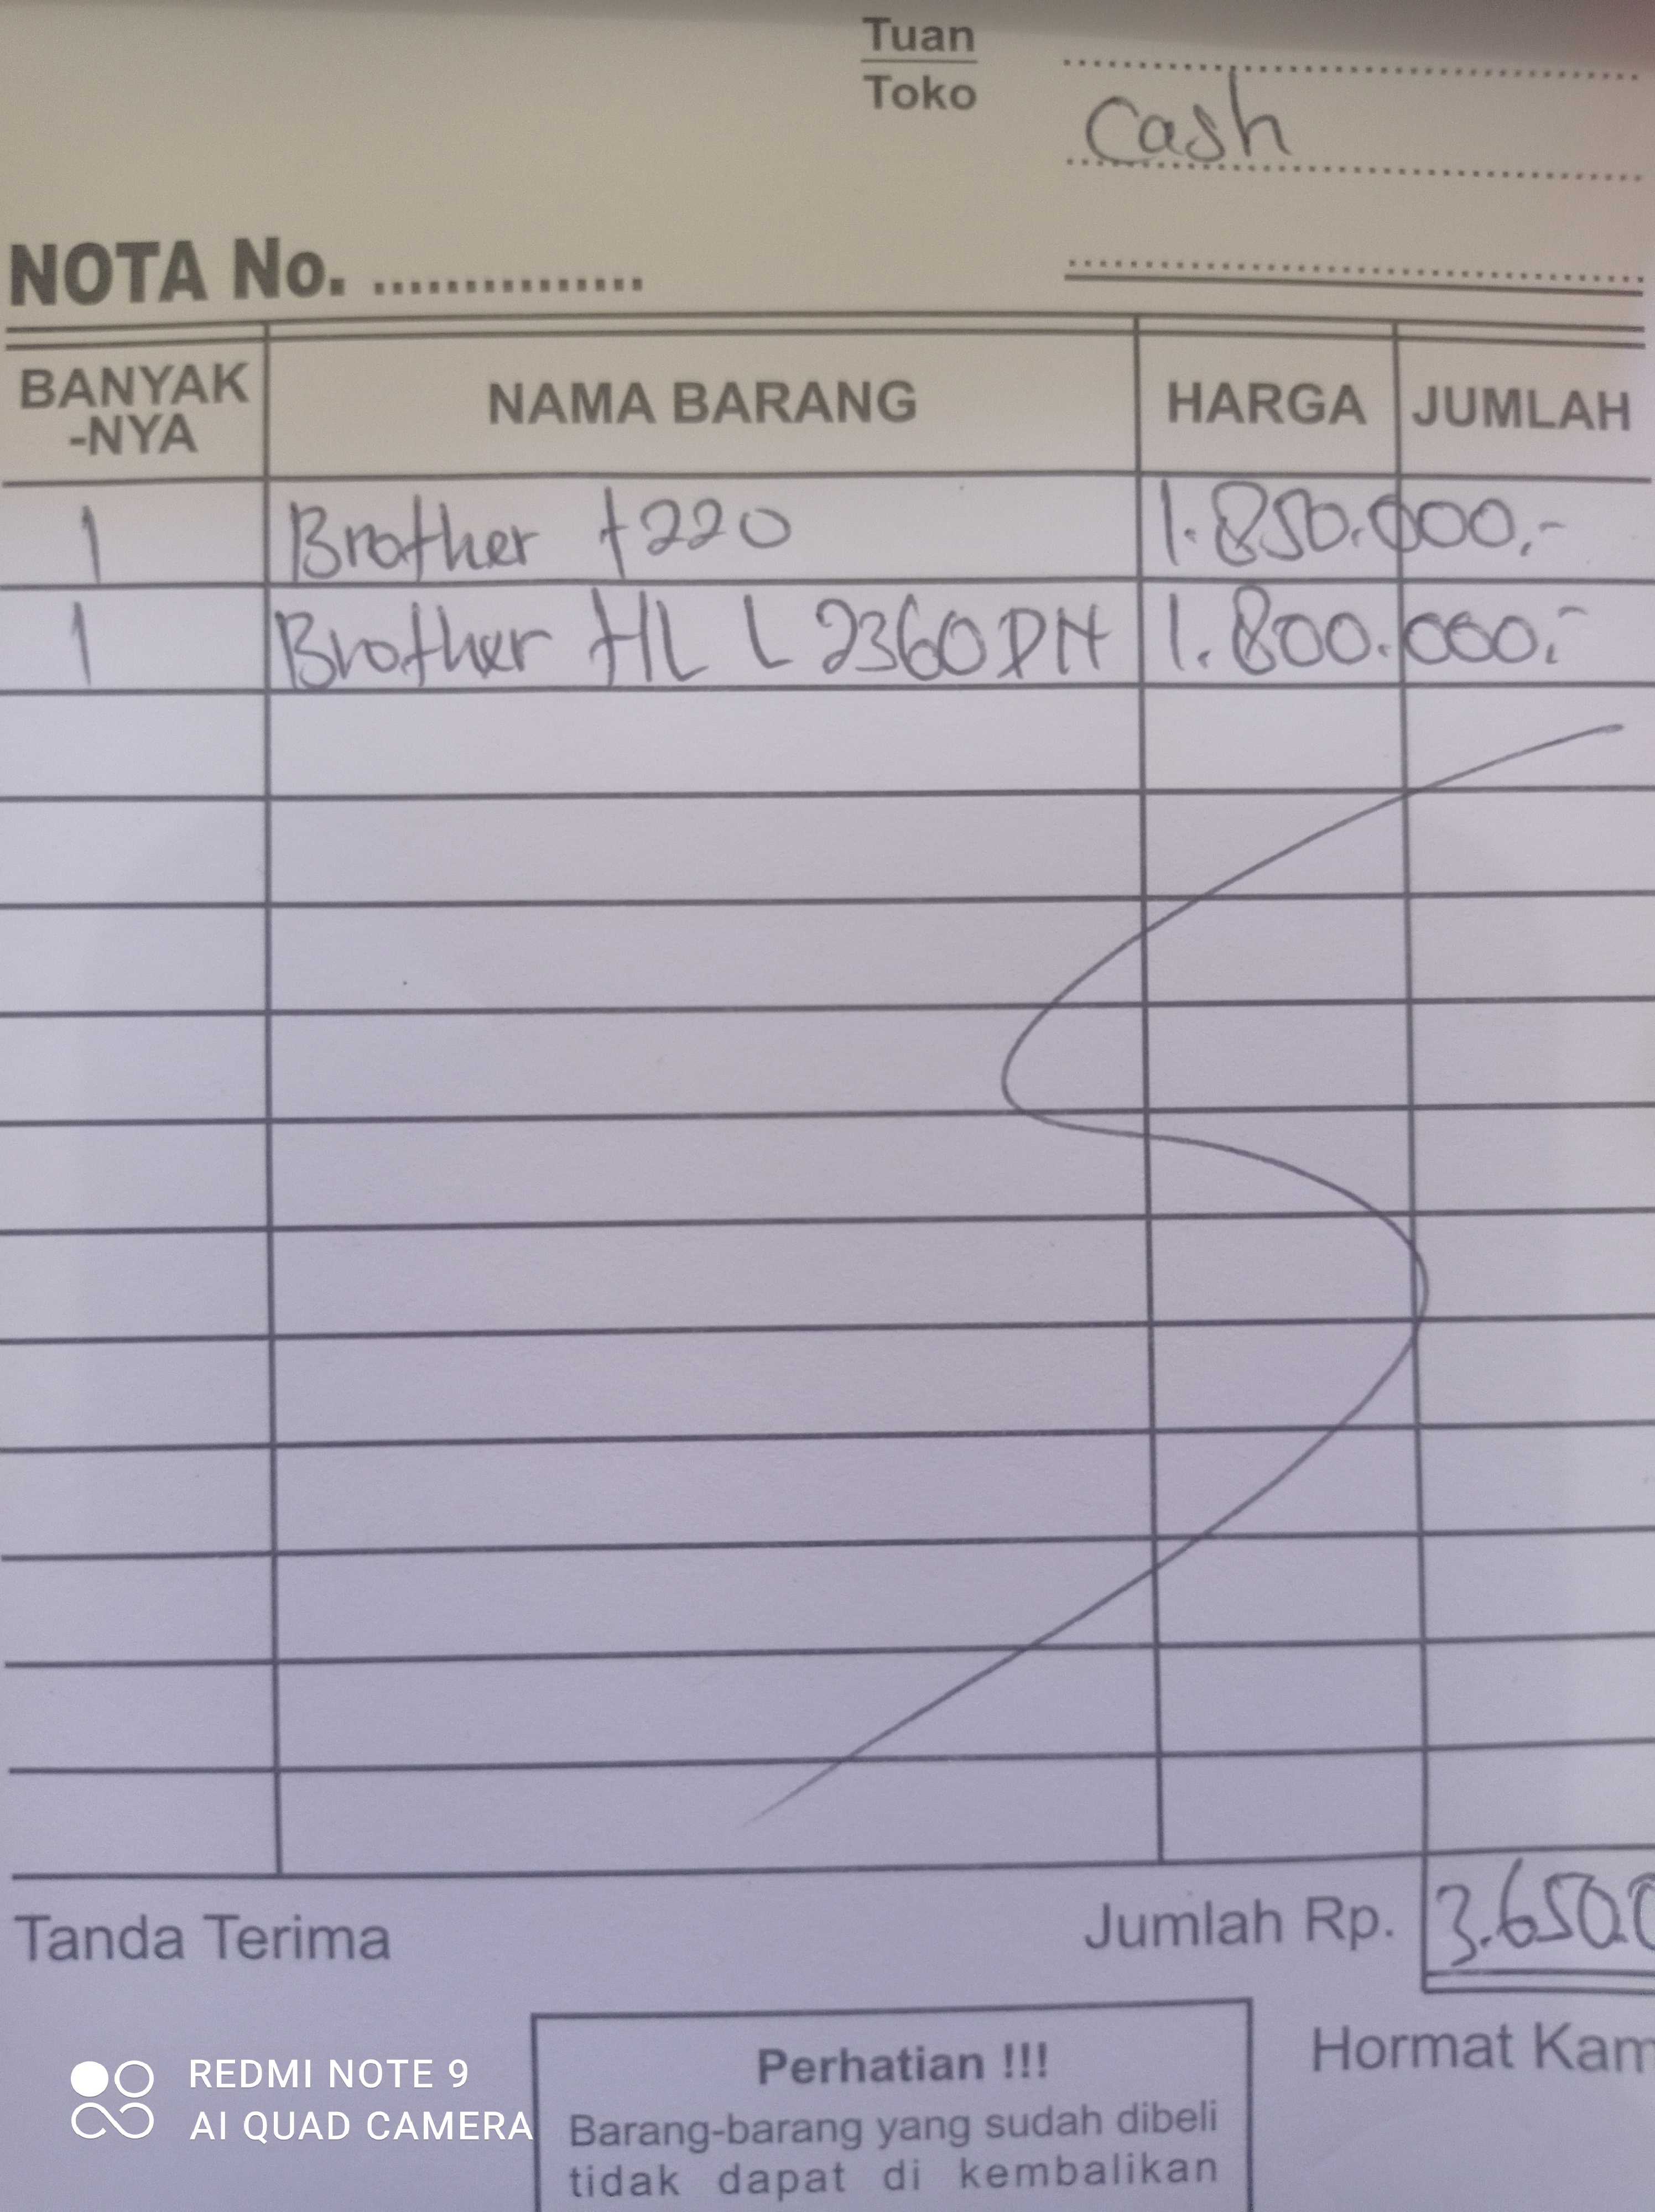 Tuan
Toko
Cash
NOTA No. ...............
BANYAK -NYA NAMA BARANG HARGA JUMLAH
1 Brother t220 1.850.000,-
1 Brother HL L 2360DN 1.800.000,-
Tanda Terima Jumlah Rp. 3.650.0
Hormat Kam
Perhatian !!!
Barang-barang yang sudah dibeli
tidak dapat di kembalikan
REDMI NOTE 9
AI QUAD CAMERA